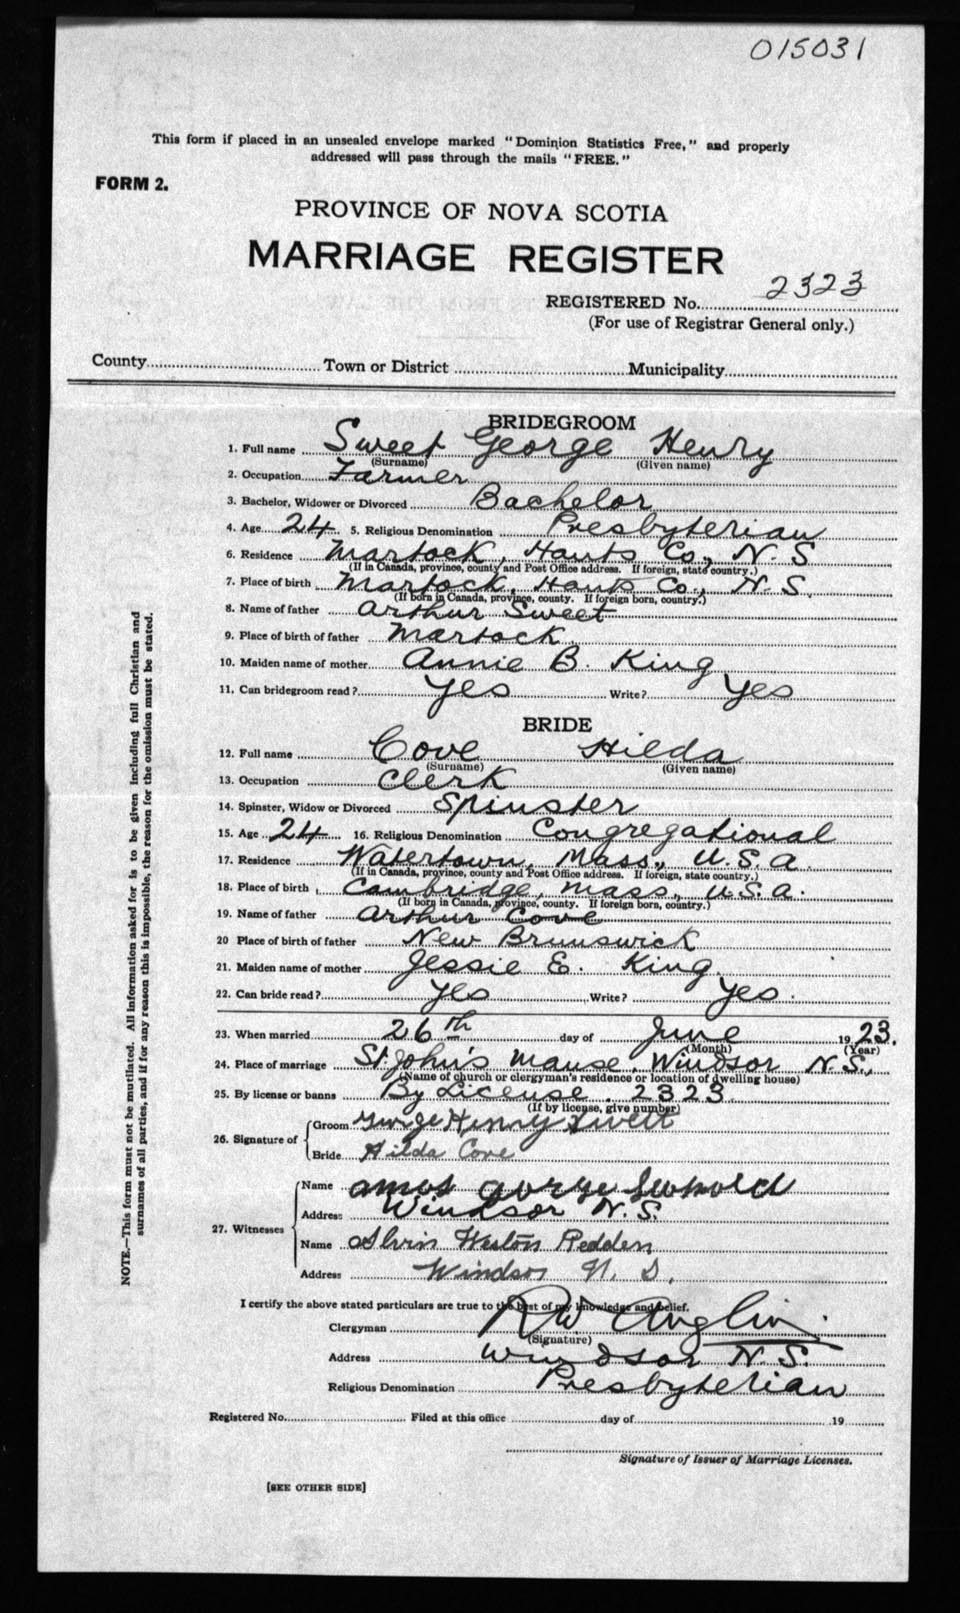 015031
This form if placed in an unsealed envelope marked "Dominion Statistics Free," and properly
addressed will pass through the mails "FREE."
FORM 2.
PROVINCE OF NOVA SCOTIA
MARRIAGE REGISTER
REGISTERED No. 2323
(For use of Registrar General only.)
County Town or District Municipality
BRIDEGROOM
1. Full name Sweet George Henry
(Surname) (Given name)
2. Occupation Farmer
3. Bachelor, Widower or Divorced Bachelor
4. Age 24 5. Religious Denomination Presbyterian
6. Residence Martock, Hants Co., N.S
(If in Canada, province, county and Post Office address. If foreign, state country.)
7. Place of birth Martock, Hants Co., N.S.
(If born in Canada, province, county. If foreign born, country.)
8. Name of father Arthur Sweet
9. Place of birth of father Martock
10. Maiden name of mother Annie B. King
11. Can bridegroom read? Yes Write? Yes
BRIDE
12. Full name Cove Hilda
(Surname) (Given name)
13. Occupation Clerk
14. Spinster, Widow or Divorced Spinster
15. Age 24 16. Religious Denomination Congregational
17. Residence Watertown, Mass., U.S.A.
(If in Canada, province, county and Post Office address. If foreign, state country.)
18. Place of birth Cambridge, Mass., U.S.A.
(If born in Canada, province, county. If foreign born, country.)
19. Name of father Arthur Cove
20 Place of birth of father New Brunswick
21. Maiden name of mother Jessie E. King
22. Can bride read? Yes Write? Yes.
23. When married 26th day of June 1923.
(Month) (Year)
24. Place of marriage St. John's Manse, Windsor N.S.,
(Name of church or clergyman's residence or location of dwelling house)
25. By license or banns By License. 2323
(If by license, give number)
26. Signature of Groom George Henry Sweet
Bride Hilda Cove
27. Witnesses Name Amos George
Address Windsor N.S.
Name Alvin Weston Redden
Address Windsor N.S.
I certify the above stated particulars are true to the best of my knowledge and belief.
Clergyman RW Anglin
(Signature)
Address Windsor N.S.
Religious Denomination Presbyterian
Registered No. Filed at this office day of 19
Signature of Issuer of Marriage Licenses.
[SEE OTHER SIDE]
NOTE.—This form must not be mutilated. All information asked for is to be given including full Christian and
surnames of all parties, and if for any reason this is impossible, the reason for the omission must be stated.